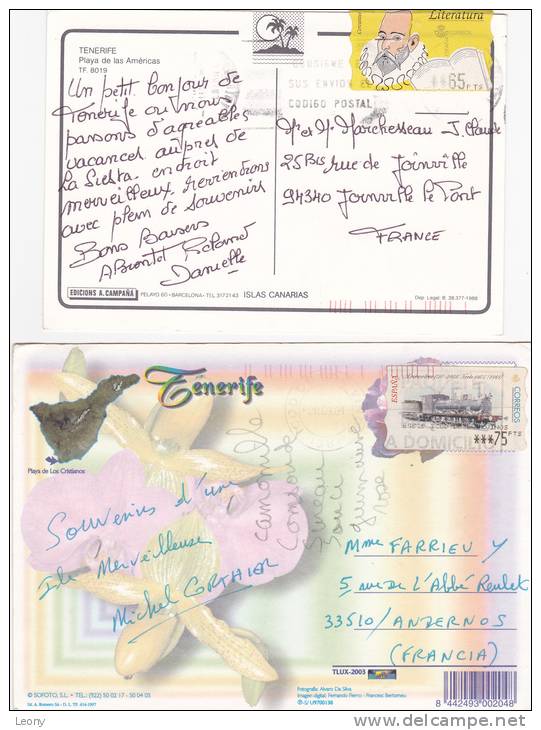 TENERIFE
Playa de las Américas
TF. 8019
Literatura
65 PTS
CONSIGNE
SUS ENVIOS
CODIGO POSTAL
Un petit bonjour de
Tenerife ou nous
passons d'agreables
vacances aupres de
La Siesta. endroit
merveilleux. Reviendrons
avec plein de souvenirs
Bons Baisers
Danielle
Mr et Me Marchesseau J. Claude
25 Bis rue de Joinville
94340 Joinville le Pont
FRANCE
EDICIONS A. CAMPAÑÁ
PELAYO 60 • BARCELONA • TEL. 3173143 ISLAS CANARIAS
Dep. Legal B. 38.377-1988
Tenerife
Playa de Los Cristianos
ESPAÑA
CORREOS
A DOMICILIO
***75 PTS
camomille
souci
guimauve
rose
Souvenirs d'une
Ile Merveilleuse
Michel
Mme FARRIEU Y
5 rue de L'Abbé
33510/ANDERNOS
(FRANCIA)
© SOFOTO, S.L. - TEL.: (922) 50 02 17 - 50 04 03
TLUX-2003
Fotografía: Alvaro Da Silva
Imagen digital: Fernando Fierro - Francesc Bertomeu
8 442493 002048
Leory
delcampe.net